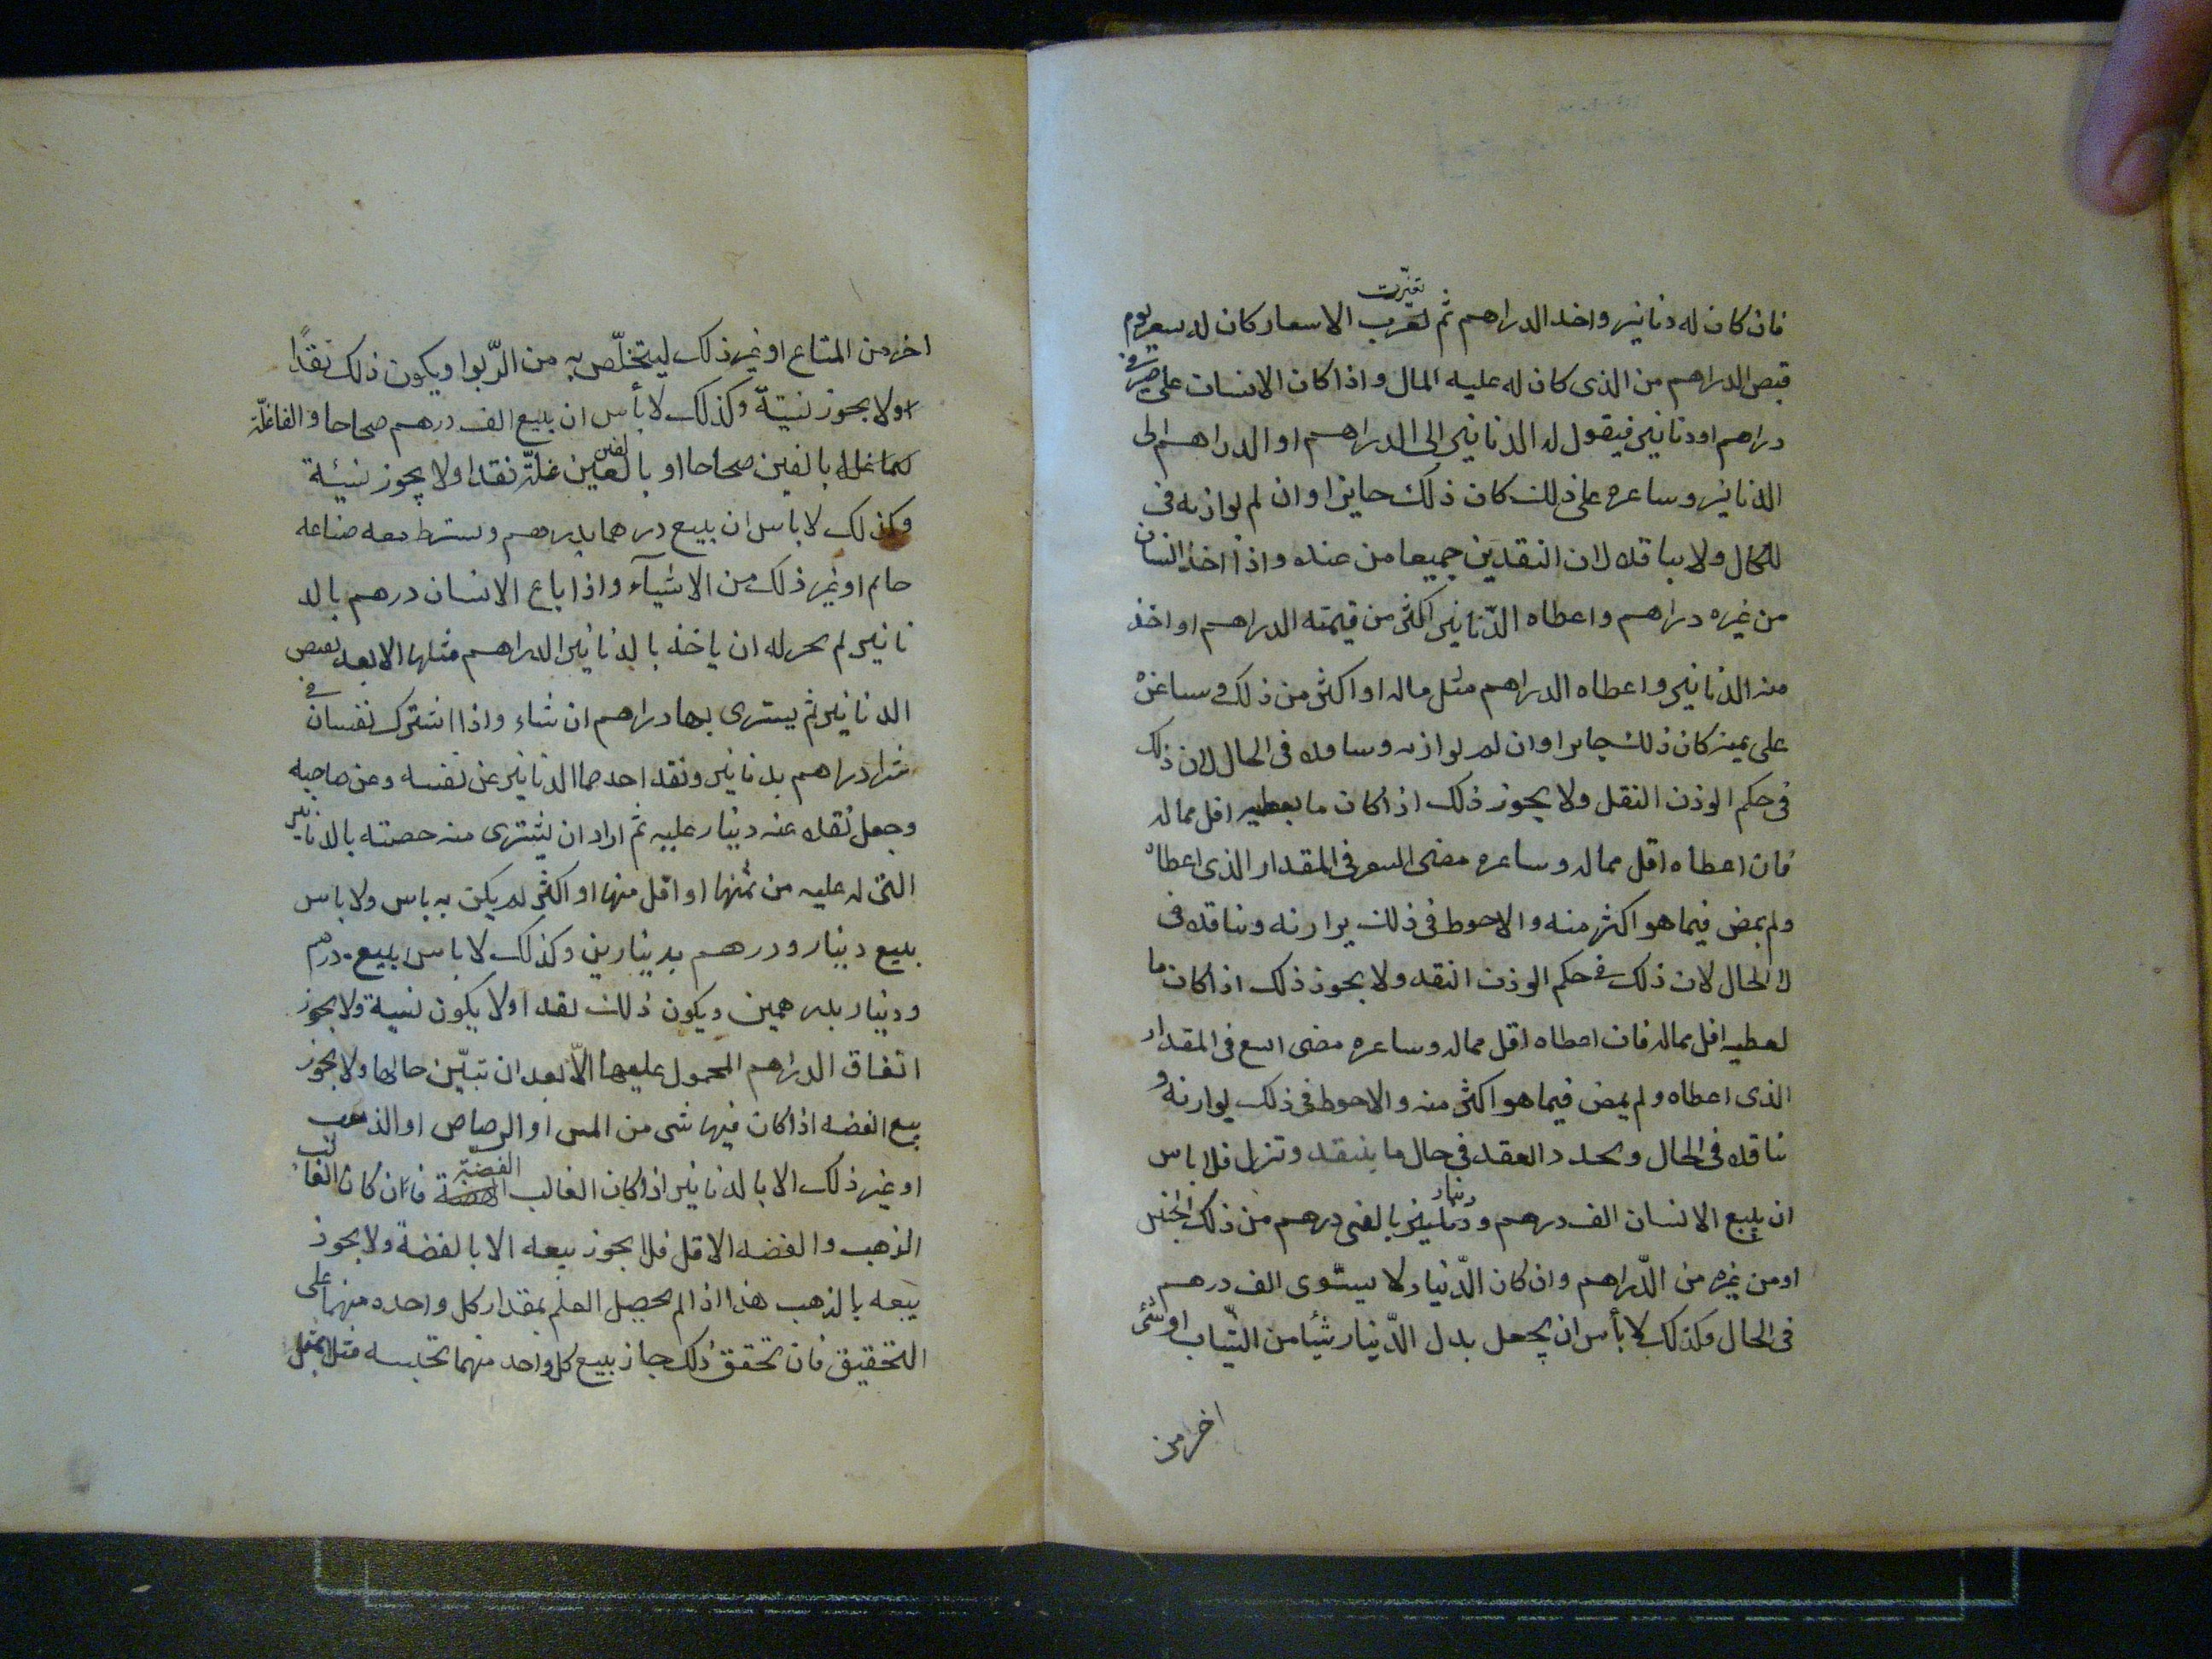 فان كان له دنانير واخذ الدراهم ثم تغيرت الاسعار كان له سعر يوم
قبض الدراهم من الذى كان له عليه المال واذا كان الانسان على صيرفى
دراهم او دنانير فيقول له الدنانير الى الدراهم او الدراهم الى
الدنانير وساعره على ذلك كان ذلك جايزا وان لم يوازنه فى
الحال ولا يناقده لان النقدين جميعا من عنده واذا اخذ انسان
من غيره دراهم واعطاه الدّنانير اكثر من قيمته الدراهم او اخذ
منه الدنانير واعطاه الدراهم مثل ماله او اكثر من ذلك و ساعره
على ثمنه كان ذلك جايزا وان لم يوازنه و يناقده فى الحال لان ذلك
فى حكم الوزن النقد ولا يجوز ذلك اذا كان ما يعطيه اقل مماله
فان اعطاه اقل مماله وساعره مضى السعر فى المقدار الذى اعطاه
ولم يمض فيما هو اكثر منه والاحوط فى ذلك يوازنه ويناقده فى
الحال لان ذلك فى حكم الوزن النقد ولا يجوز ذلك اذا كان ما
يعطيه اقل مماله فان اعطاه اقل مماله وساعره مضى البيع فى المقدار
الذى اعطاه ولم يمض فيما هو اكثر منه والاحوط فى ذلك يوازنه و
يناقده فى الحال ويجدد العقد فى حال ما ينتقد وتزن فلا باس
ان يبيع الانسان الف درهم ودينار بالفى درهم من ذلك الجنس
او من غيره من الدّراهم وان كان الدّينار لا يستوى الف درهم
فى الحال وكذلك لا بأس ان يجعل بدل الدّينار شيئا من الثّياب او شئى
اخر من
اخر من المتاع او غير ذلك ليتخلّص به من الرّبوا ويكون ذلك نقدًا
ولا يجوز نسية وكذلك لا بأس ان يبيع الف درهم صحاحا والفا غلّة
بالفين صحاحا او بالفين غلّة نقدا ولا يجوز نسيئة
وكذلك لا باس ان يبيع درهما بدرهم ويشترط معه صناعة
خاتم او غير ذلك من الاشيآء واذا باع الانسان درهم بالد
نانير لم يجز له ان ياخذ بالدنانير الدراهم مثلها الا بعد يقبض
الدنانير ثم يشترى بها دراهم ان شاء واذا اشترك نفسان فى
شرا دراهم بدنانير ونقد احدهما الدنانير عن نفسه وعن صاحبه
وجعل نقده عنه دينار عليه ثم اراد ان يشترى منه حصته بالدنانير
التى له عليه من ثمنها او اقل منها او اكثر لم يكن به باس ولا باس
ببيع دينار ودرهم بدينارين وكذلك لا باس ببيع درهم
ودينار بدرهمين ويكون ذلك نقدا ولا يكون نسية ولا يجوز
انفاق الدراهم المحمول عليها الاّ بعد ان تبيّن حالها ولا يجوز
بيع الفضه اذا كان فيها شى من المس او الرصاص او الذهب
او غير ذلك الا بالدنانير اذا كان الغالب الفضة فان كان الغالب
الذهب والفضه الاقل فلا يجوز بيعه الا بالفضة ولا يجوز
بيعه بالذهب هذا اذا لم يحصل العلم بمقدار كل واحده منهما على
التحقيق فان تحقق ذلك جاز بيع كل واحد منهما بجنسه مثلا بمثل